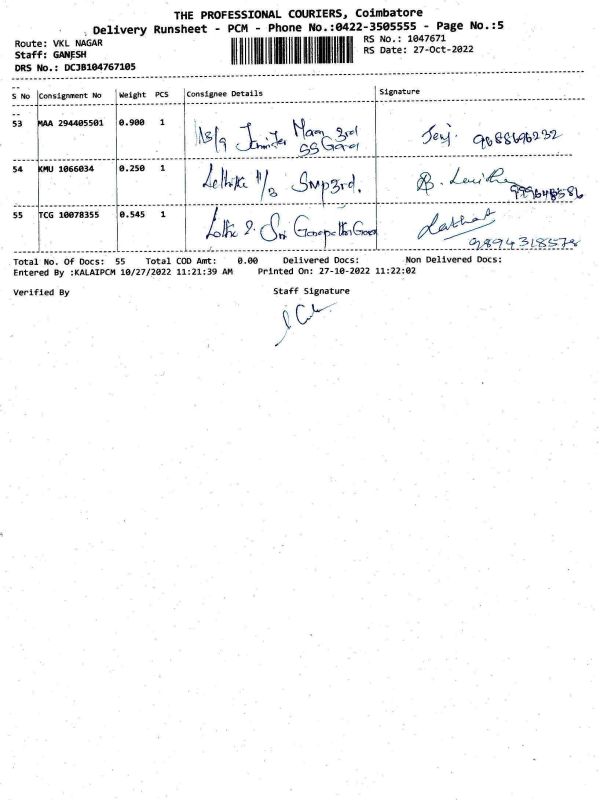 THE PROFESSIONAL COURIERS, Coimbatore
Delivery Runsheet - PCM - Phone No.:0422-3505555 - Page No.:5
Route: VKL NAGAR
RS No.: 1047671
Staff: GANESH
RS Date: 27-Oct-2022
DRS No.: DCJB104767105
S No Consignment No Weight PCS Consignee Details Signature
53 MAA 294405501 0.900 1
Jennifer Mam 3rd
Jenj. 9688696232
54 KMU 1066034 0.250 1
3rd.
55 TCG 10078355 0.545 1
Latha
9894318578
Total No. Of Docs: 55 Total COD Amt: 0.00 Delivered Docs: Non Delivered Docs:
Entered By :KALAIPCM 10/27/2022 11:21:39 AM Printed On: 27-10-2022 11:22:02
Verified By Staff Signature